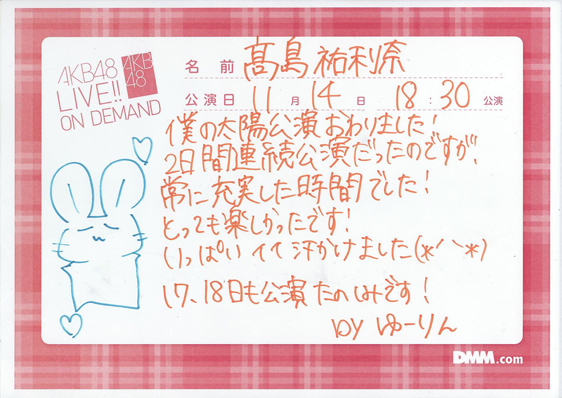 AKB48
LIVE!!
ON DEMAND
AKB
48
名前 髙島祐利奈
公演日 11月14日 18:30公演
僕の太陽公演おわりました!
2日間連続公演だったのですが、
常に充実した時間でした!
とっても楽しかったです!
いっぱいイイ汗かけました(*´`*)
17、18日も公演たのしみです!
by ゆーりん
DMM.com